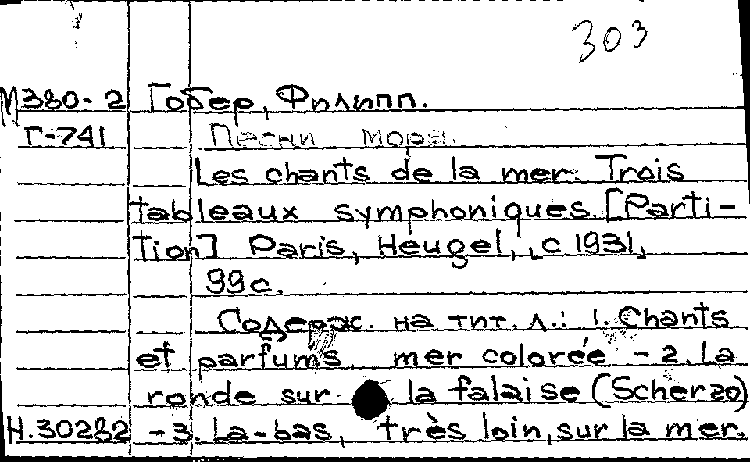 303
М380-2 Гобер, Филипп.
Г-741 Песни моря.
Les chants de la mer. Trois
tableaux symphoniques. [Parti-
tion] Paris, Heugel, c 1931,
99с.
Содерж. на тит. л.: 1. Chants
et parfums, mer colorée - 2. La
ronde sur la falaise (Scherzo)
Н.30282 - 3. La-bas, très loin, sur la mer.